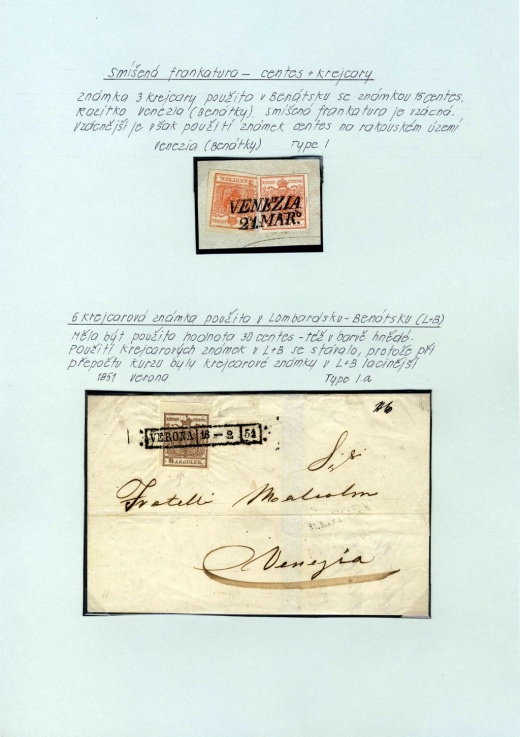 Smíšená frankatura - centes + krejcary
známka 3 krejcary použita v Benátsku se známkou 15 centes.
Razítko Venezia (Benátky) smíšená frankatura je vzácná.
Vzácnější je však použití známek centes na rakouském území
Venezia (Benátky) Type I
VENEZIA
21. MAR.º
6 krejcarová známka použita v Lombardsku-Benátsku (L+B)
Měla být použita hodnota 30 centes - též v barvě hnědé.
Použití krejcarových známek v L+B se stávalo, protože při
přepočtu kurzu byly krejcarové známky v L+B lacinější
1851 Verona Type I.a
VERONA 16 - 2 51
6 KREUZER
Fratelli Malcolm
Venezia